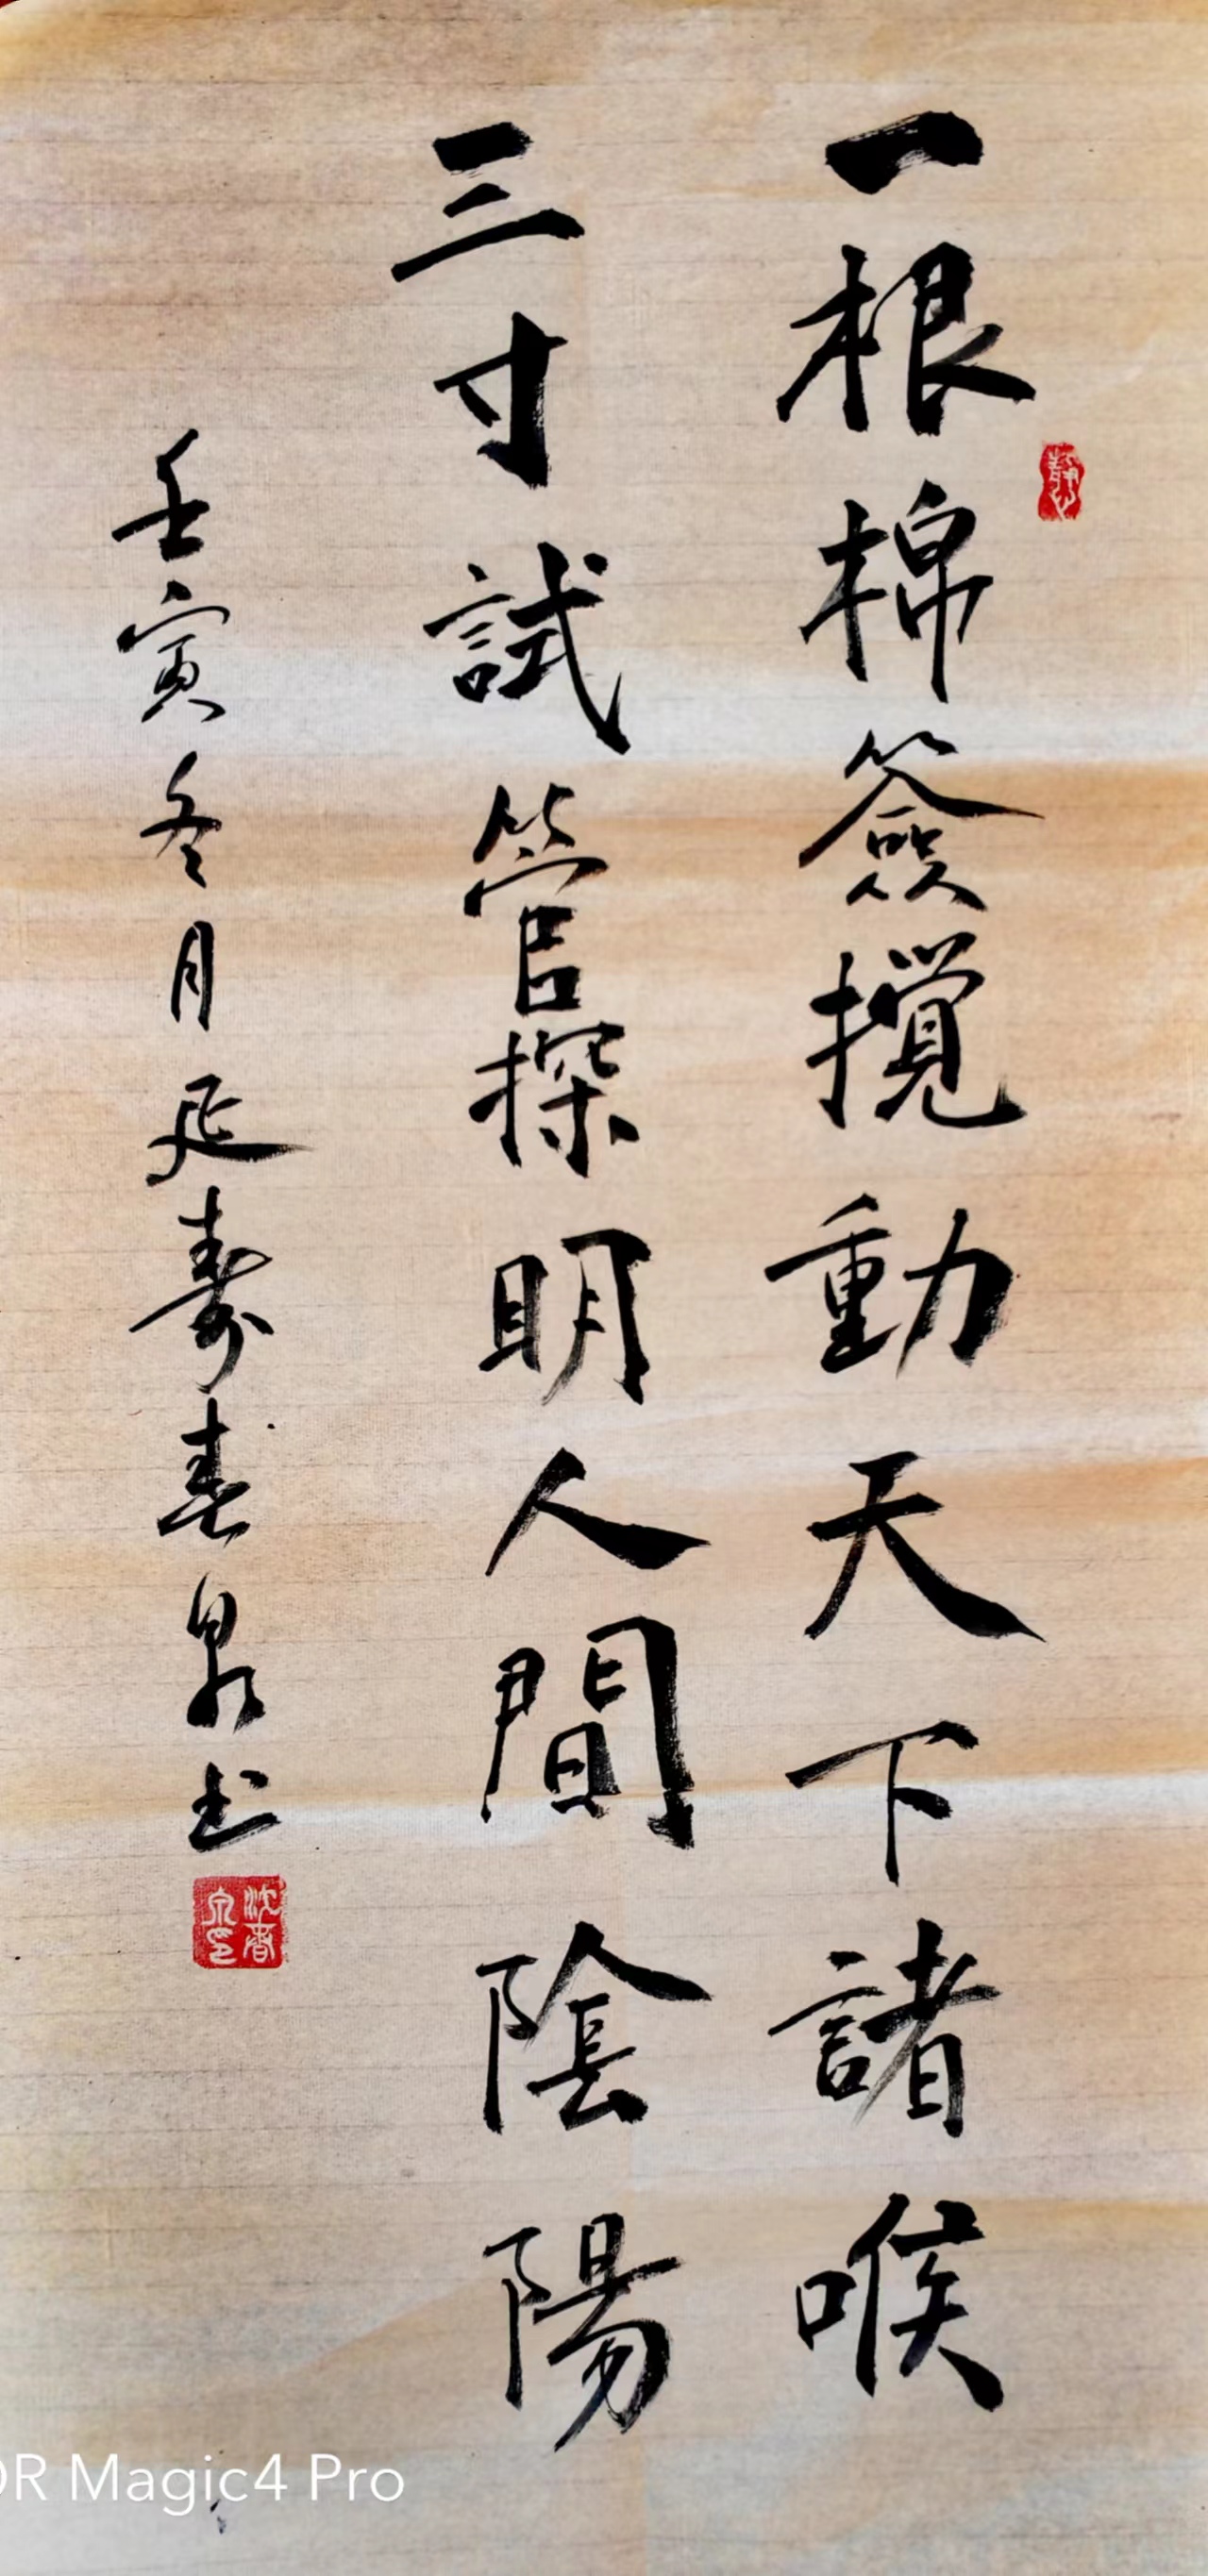 一根棉簽攪動天下諸喉
三寸試管探明人間陰陽
壬寅冬月延壽春泉书
靜
沈春泉印
OR Magic4 Pro